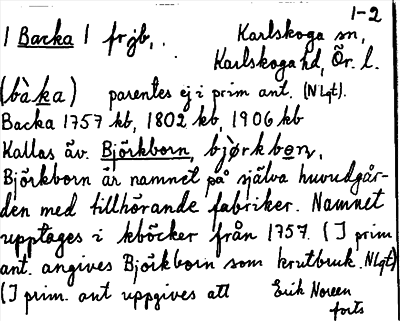 1-2
| Backa | frjb,. Karlskoga sn,
Karlskoga hd, Ör. l.
(bàka) parentes ej i prim ant. (NLgt).
Backa 1757 kb, 1802 kb, 1906 kb
Kallas äv. Björkborn, bjørkbon,.
Björkborn är namnet på själva huvudgår-
den med tillhörande fabriker. Namnet
upptages i kböcker från 1757. (I prim
ant. angives Björkborn som krutbruk. NLgt)
(I prim. ant uppgives att Erik Noreen
forts